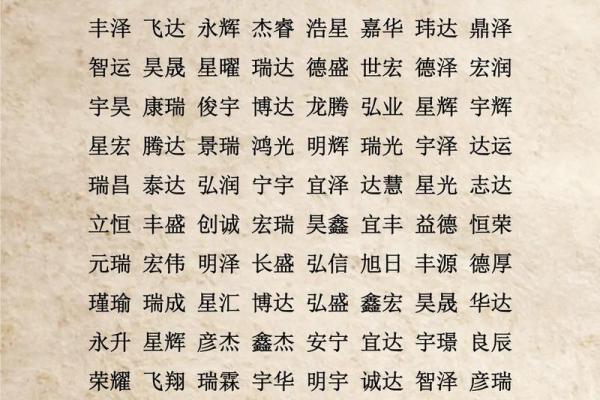 丰泽 飞达 永辉 杰睿 浩星 嘉华 玮达 鼎泽
智运 昊晟 星曜 瑞达 德盛 世宏 德泽 宏润
宇昊 康瑞 俊宇 博达 龙腾 弘业 星辉 宇辉
星宏 腾达 景瑞 鸿光 明辉 瑞光 宇泽 达运
瑞昌 泰达 弘润 宁宇 宜泽 达慧 星光 志达
立恒 丰盛 创诚 宏瑞 昊鑫 宜丰 益德 恒荣
元瑞 宏伟 明泽 长盛 弘信 旭日 丰源 德厚
瑾瑜 瑞成 星汇 博达 弘盛 鑫宏 昊晟 华达
永升 星辉 彦杰 鑫杰 安宁 宜达 宇璟 良辰
荣耀 飞翔 瑞霖 宇华 明宇 诚达 智泽 彦瑞